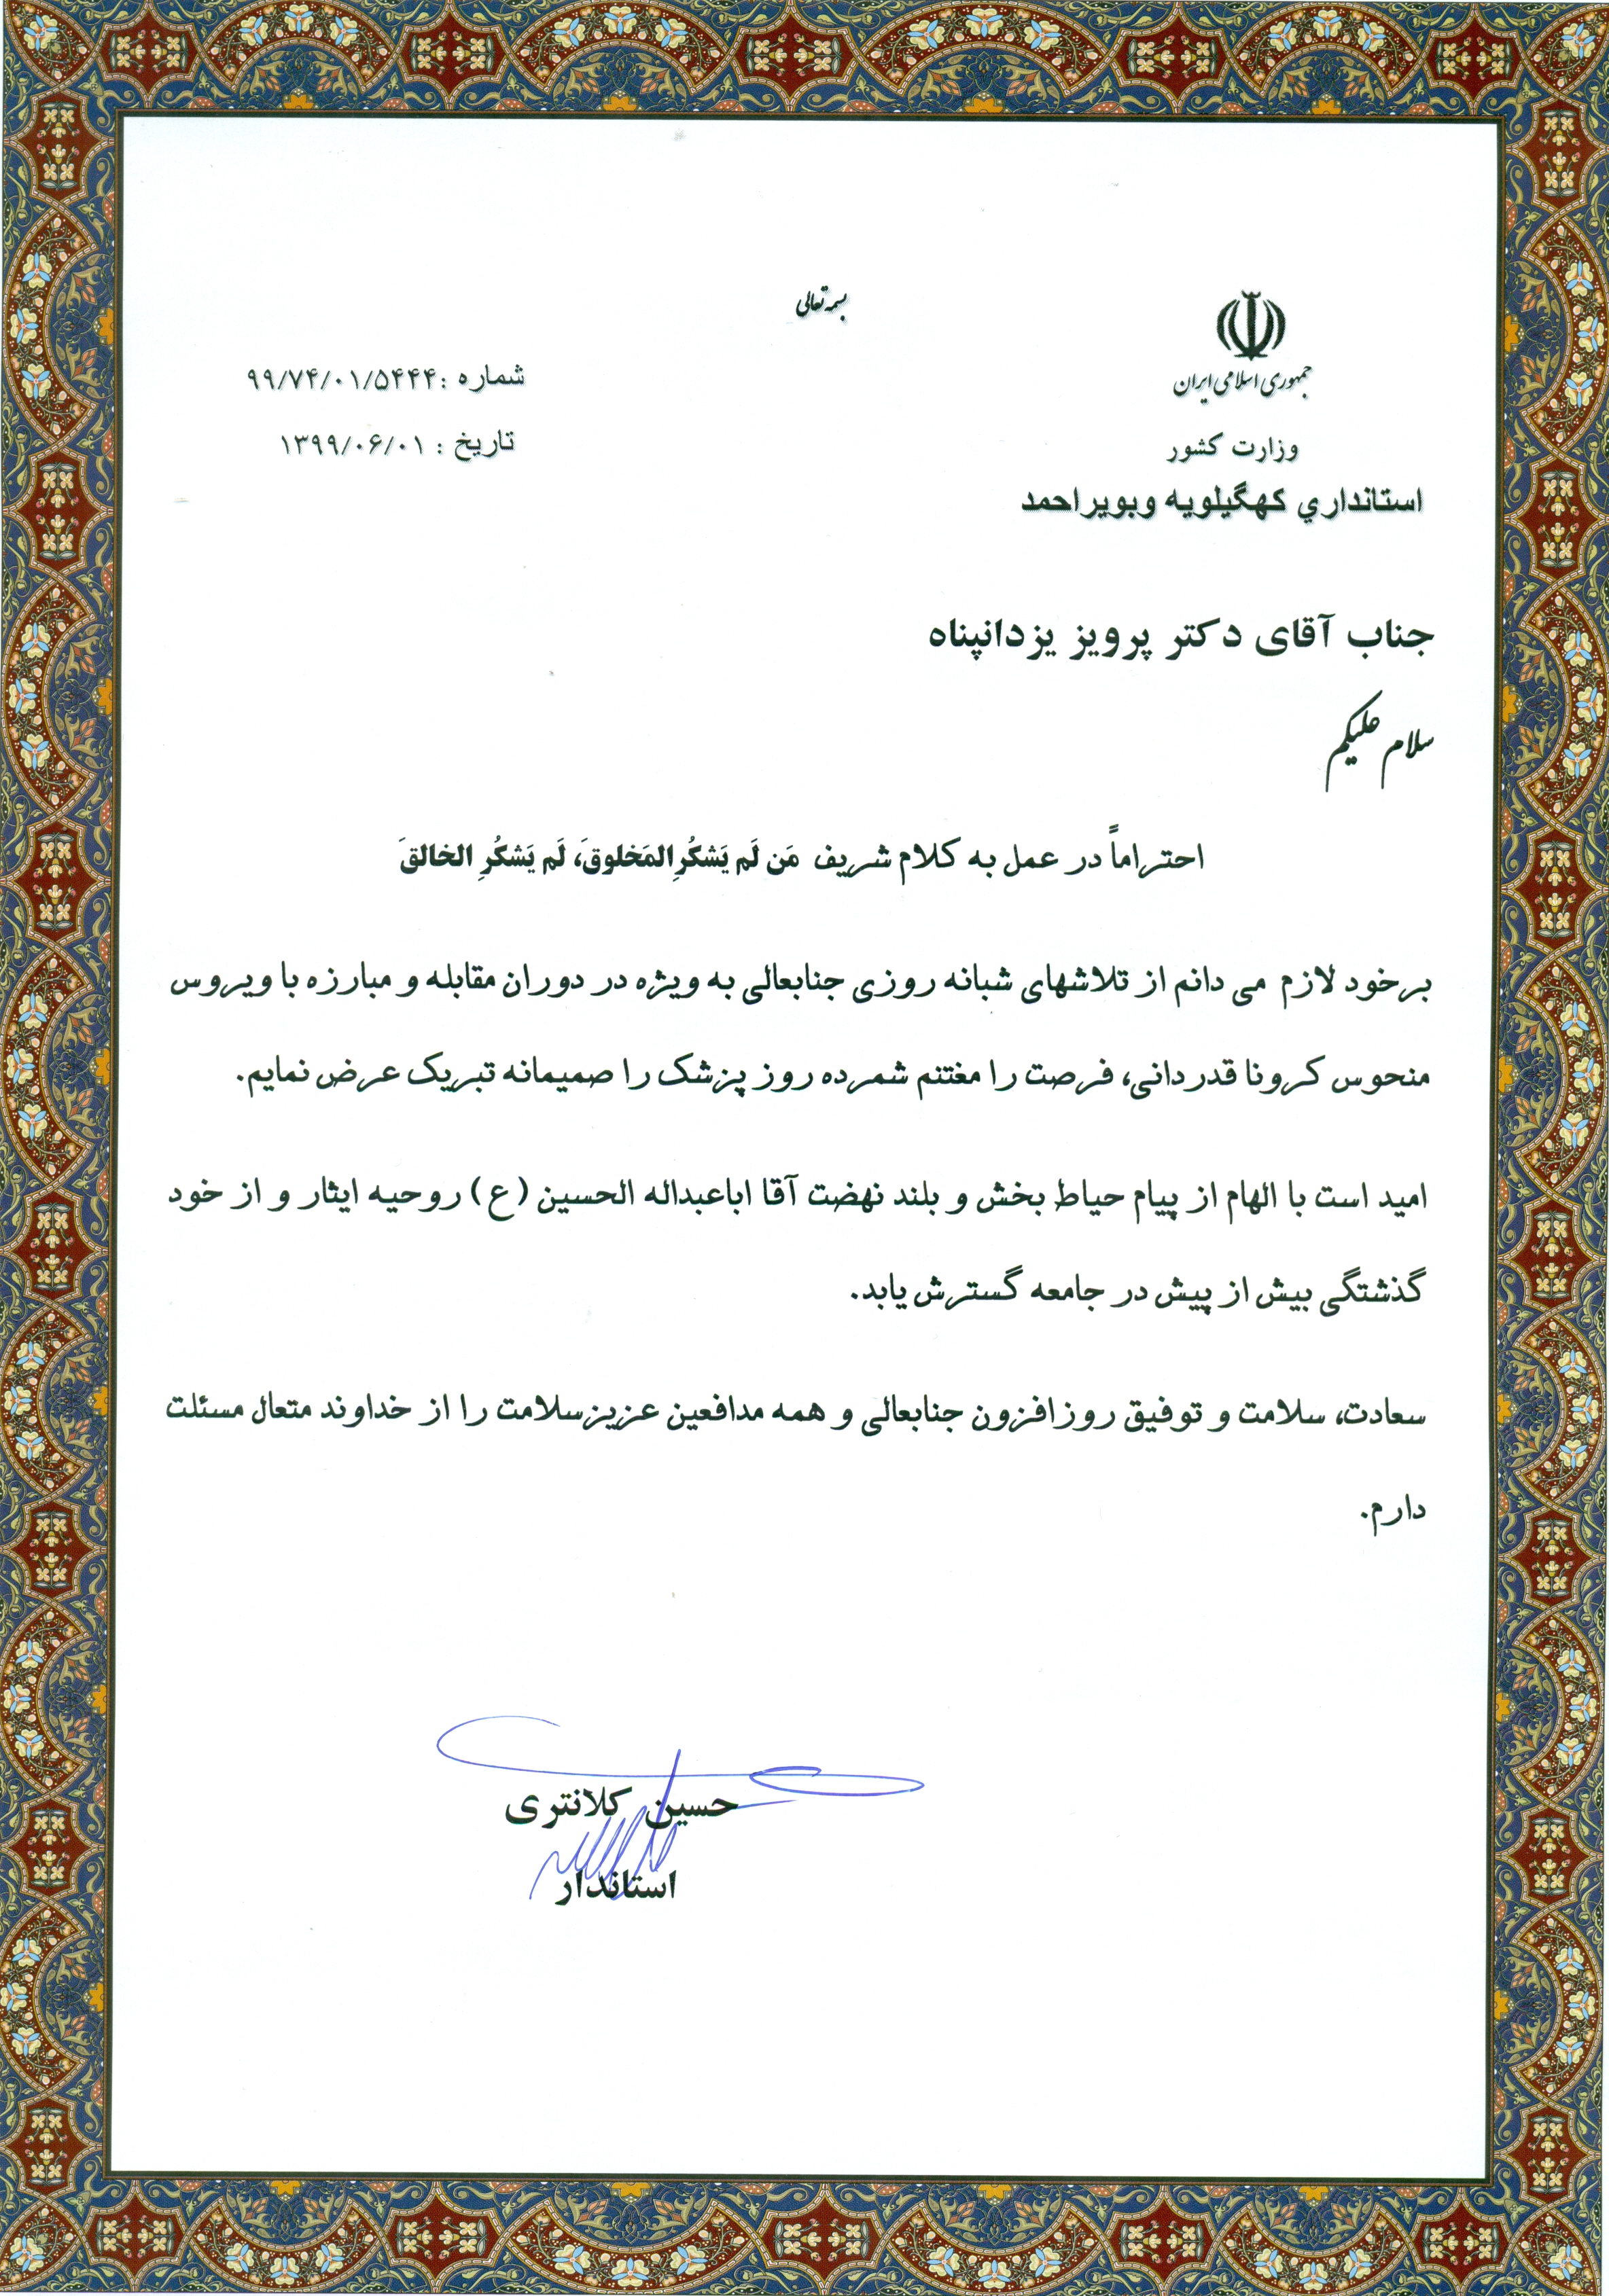 بسمه تعالی
جمهوری اسلامی ایران
وزارت کشور
استانداري کهگیلویه وبویراحمد
شماره :۹۹/۷۴/۰۱/۵۴۴۴
تاریخ : ۱۳۹۹/۰۶/۰۱
جناب آقای دکتر پرویز یزدانپناه
سلام علیکم
احتراماً در عمل به کلام شریف مَن لَم یَشکُرِالمَخلوقَ، لَم یَشکُرِ الخالقَ
برخود لازم می دانم از تلاشهای شبانه روزی جنابعالی به ویژه در دوران مقابله و مبارزه با ویروس
منحوس کرونا قدردانی، فرصت را مغتنم شمرده روز پزشک را صمیمانه تبریک عرض نمایم.
امید است با الهام از پیام حیاط بخش و بلند نهضت آقا اباعبداله الحسین (ع) روحیه ایثار و از خود
گذشتگی بیش از پیش در جامعه گسترش یابد.
سعادت، سلامت و توفیق روزافزون جنابعالی و همه مدافعین عزیزسلامت را از خداوند متعال مسئلت
دارم.
حسین کلانتری
استاندار